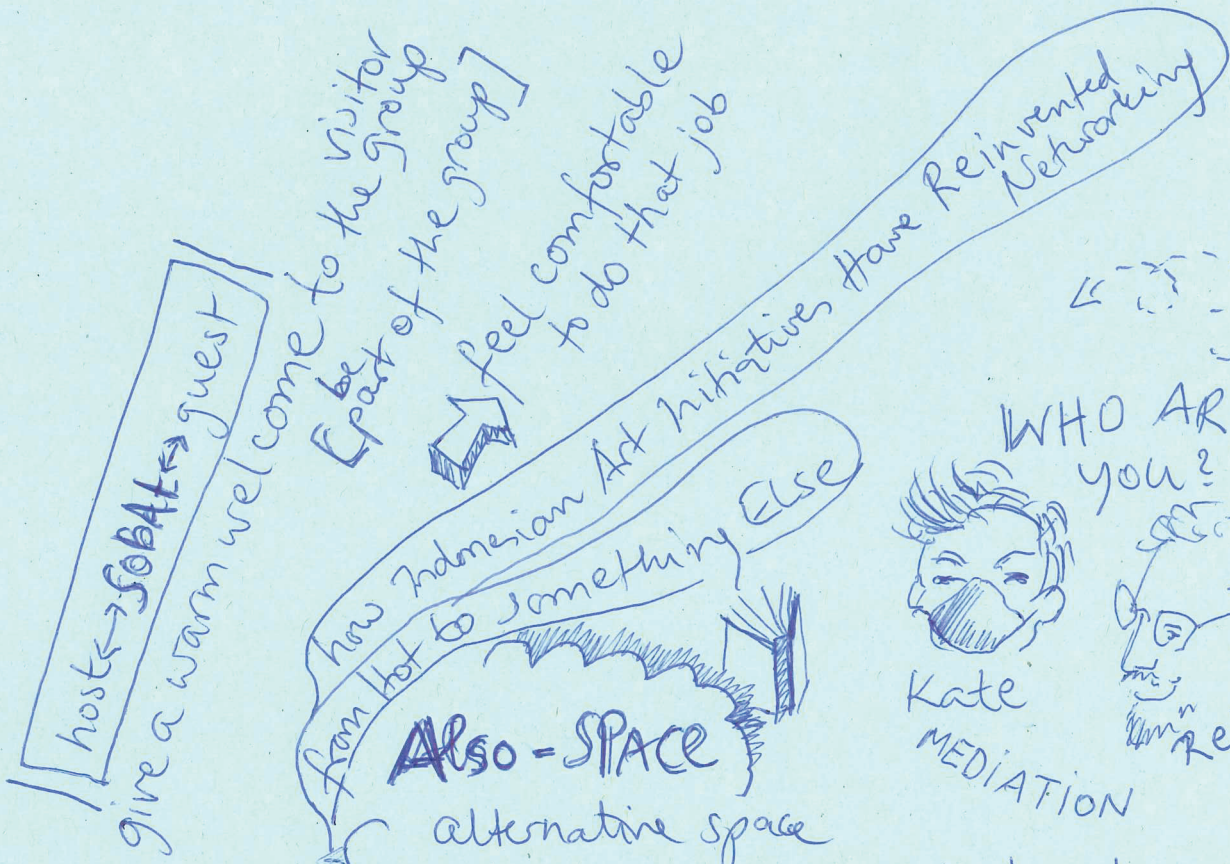 host <-> SOBAt <-> guest
give a warm welcome to the visitor
to the group
[be
part of the group]
feel comfortable
to do that job
how Indonesian Art Initiatives Have Reinvented
Networking
from hot to something Else
Also = SPACE
alternative space
WHO AR
you?
Kate
MEDiATiON
Re